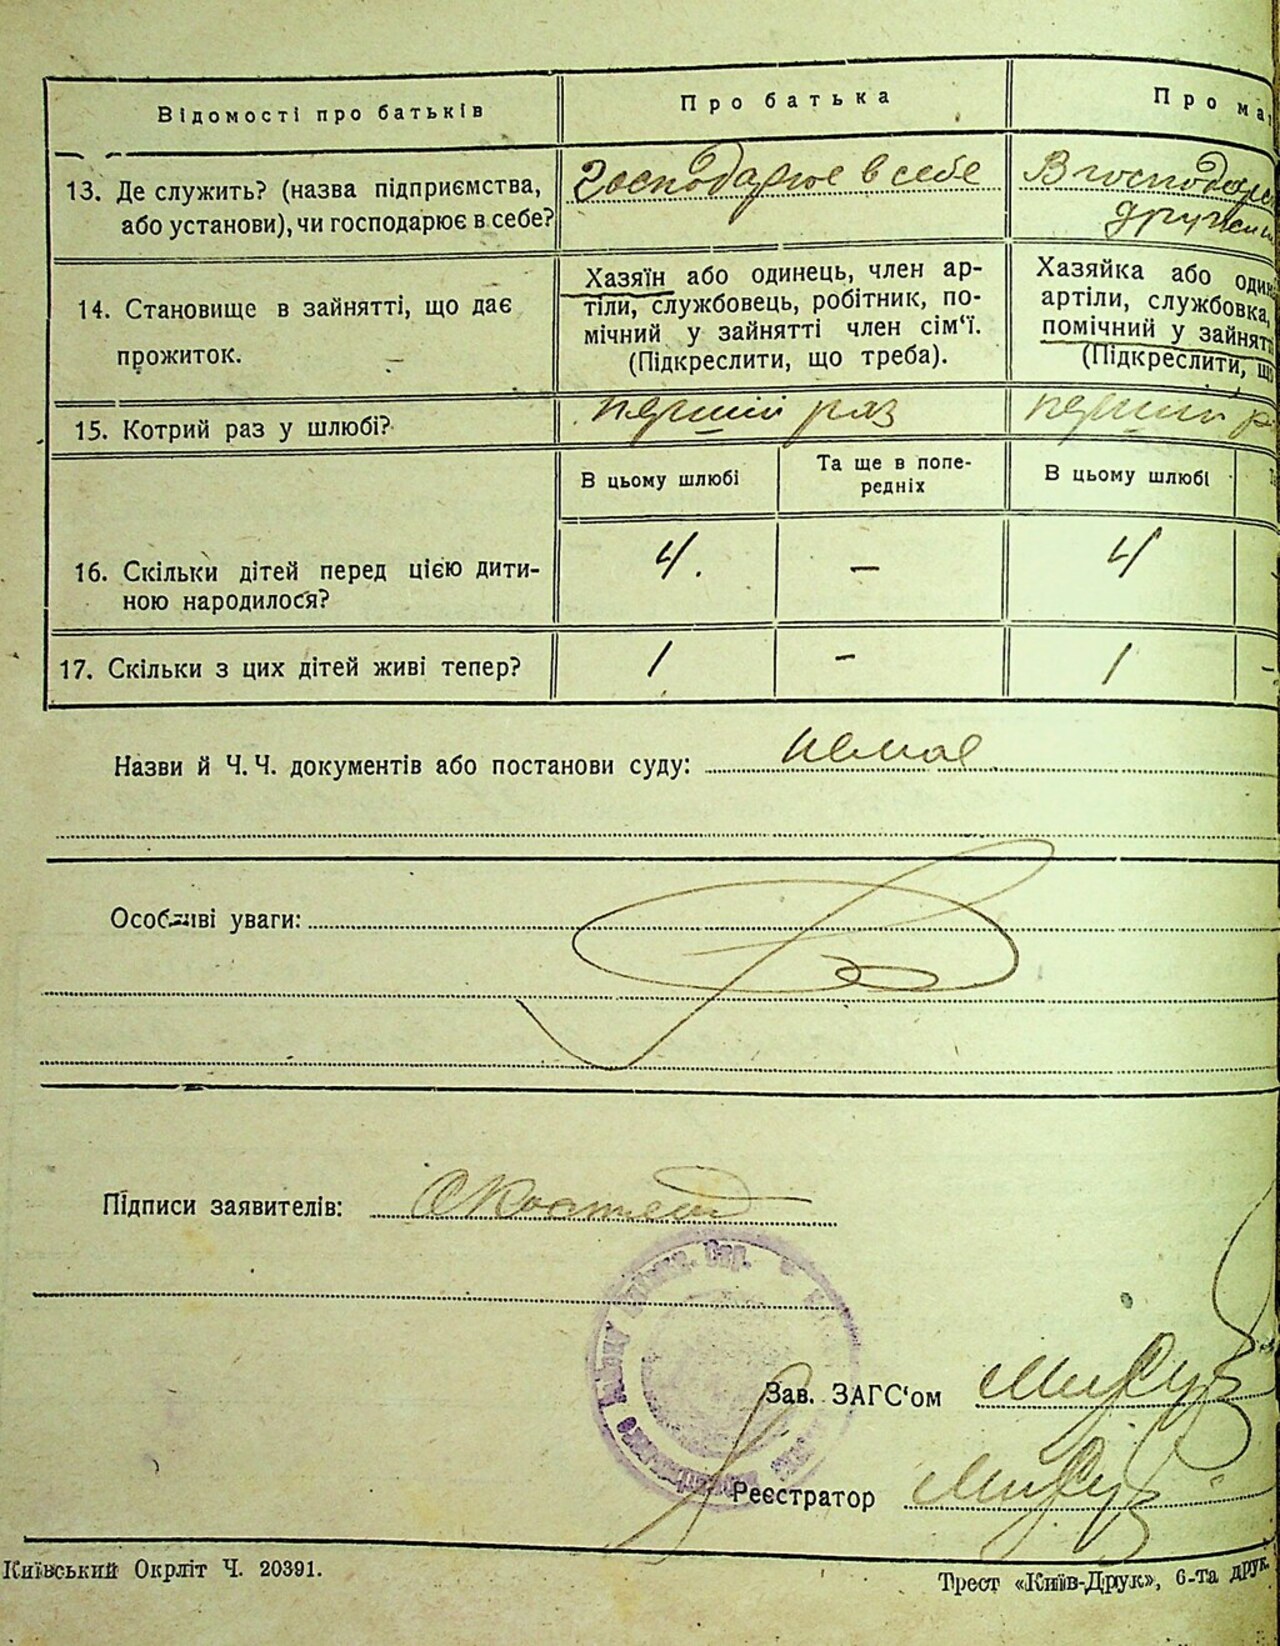 Відомості про батьків
Про батька
Про ма
13. Де служить? (назва підприємства,
або установи), чи господарює в себе?
Господарює в себе
В господарс
дружин
14. Становище в зайнятті, що дає
прожиток.
Хазяїн або одинець, член ар-
тіли, службовець, робітник, по-
мічний у зайнятті член сім'ї.
(Підкреслити, що треба).
Хазяйка або один
артіли, службовка,
помічний у зайнятт
(Підкреслити, що
15. Котрий раз у шлюбі?
перший раз
перший р
В цьому шлюбі
Та ще в попе-
редніх
В цьому шлюбі
16. Скільки дітей перед цією дити-
ною народилося?
4.
—
4
17. Скільки з цих дітей живі тепер?
1
–
1
–
Назви й Ч. Ч. документів або постанови суду: немає
Особливі уваги:
Підписи заявителів:
Зав. ЗАГС'ом
Реєстратор
Київський Окрліт Ч. 20391.
Трест «Київ-Друк», 6-та друк.